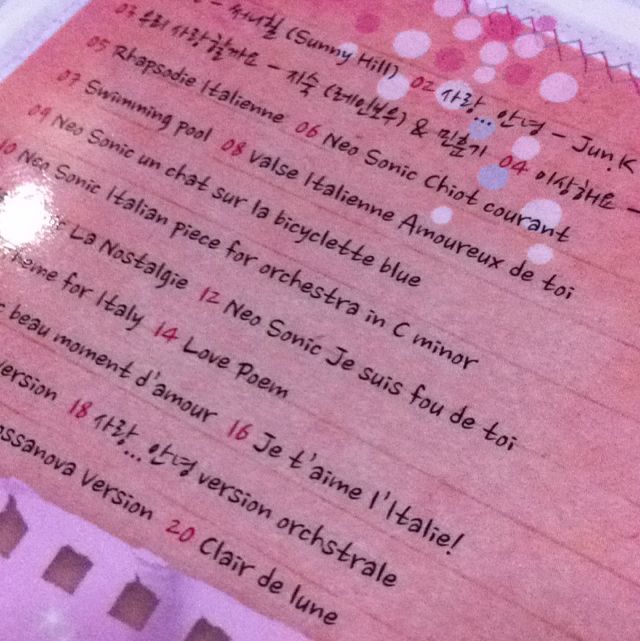 - 써니힐 (Sunny Hill) 02 사랑... 안녕 - Jun.K
03 우리 사랑할까요 - 지숙 (레인보우) & 04 이상해요 -
05 Rhapsodie Italienne 06 Neo Sonic Chiot courant
07 Swimming pool 08 Valse Italienne Amoureux de toi
09 Neo Sonic un chat sur la bicyclette blue
10 Neo Sonic Italian piece for orchestra in C minor
La Nostalgie 12 Neo Sonic Je suis fou de toi
for Italy 14 Love Poem
beau moment d'amour 16 Je t'aime l'Italie!
version 18 사랑... 안녕 version orchstrale
ssanova Version 20 Clair de lune